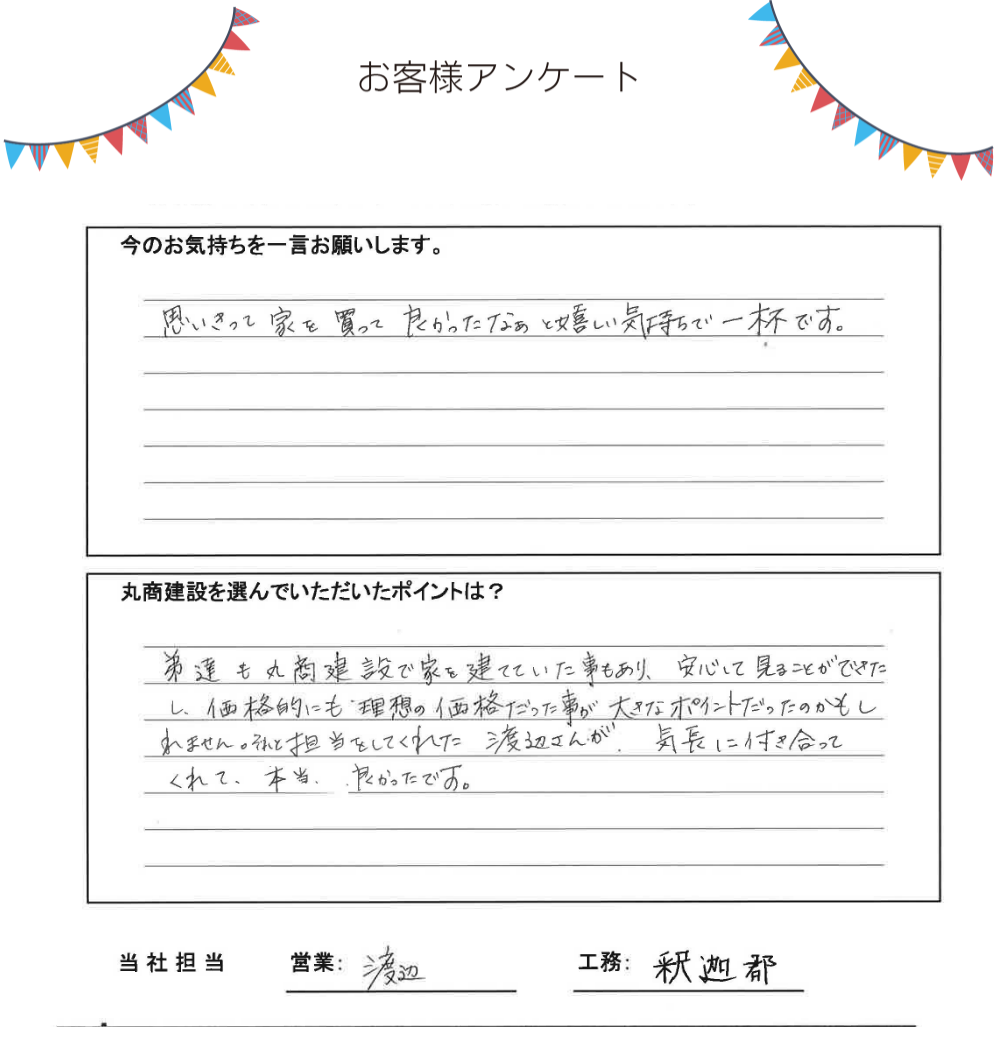 お客様アンケート
今のお気持ちを一言お願いします。
思いきって家を買って良かったなぁと嬉しい気持ちで一杯です。
丸商建設を選んでいただいたポイントは？
弟達も丸商建設で家を建てていた事もあり、安心して見ることができた
し、価格的にも理想の価格だった事が大きなポイントだったのかもし
れません。それと担当をしてくれた渡辺さんが、気長に付き合って
くれて、本当、良かったです。
当社担当 営業: 渡辺 工務: 釈迦郡